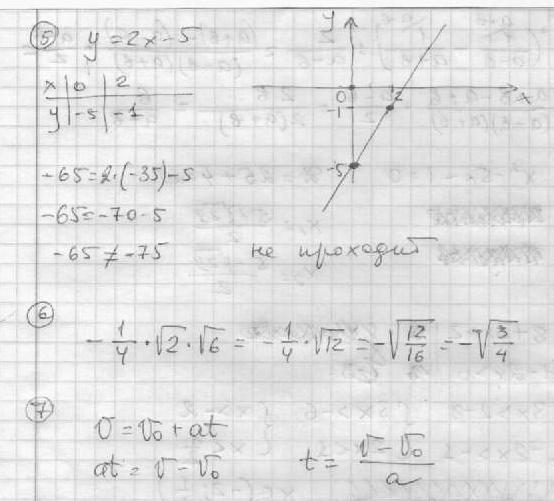 ⑤ y = 2x - 5
x | 0 | 2
y | -5 | -1
y
0 2 x
-1
-5
-65 = 2·(-35) - 5
-65 = -70 - 5
-65 ≠ -75 не проходит
⑥ -1/4 · √2 · √6 = -1/4 · √12 = -√(12/16) = -√(3/4)
⑦ v = v₀ + at
at = v - v₀ t = (v - v₀)/a